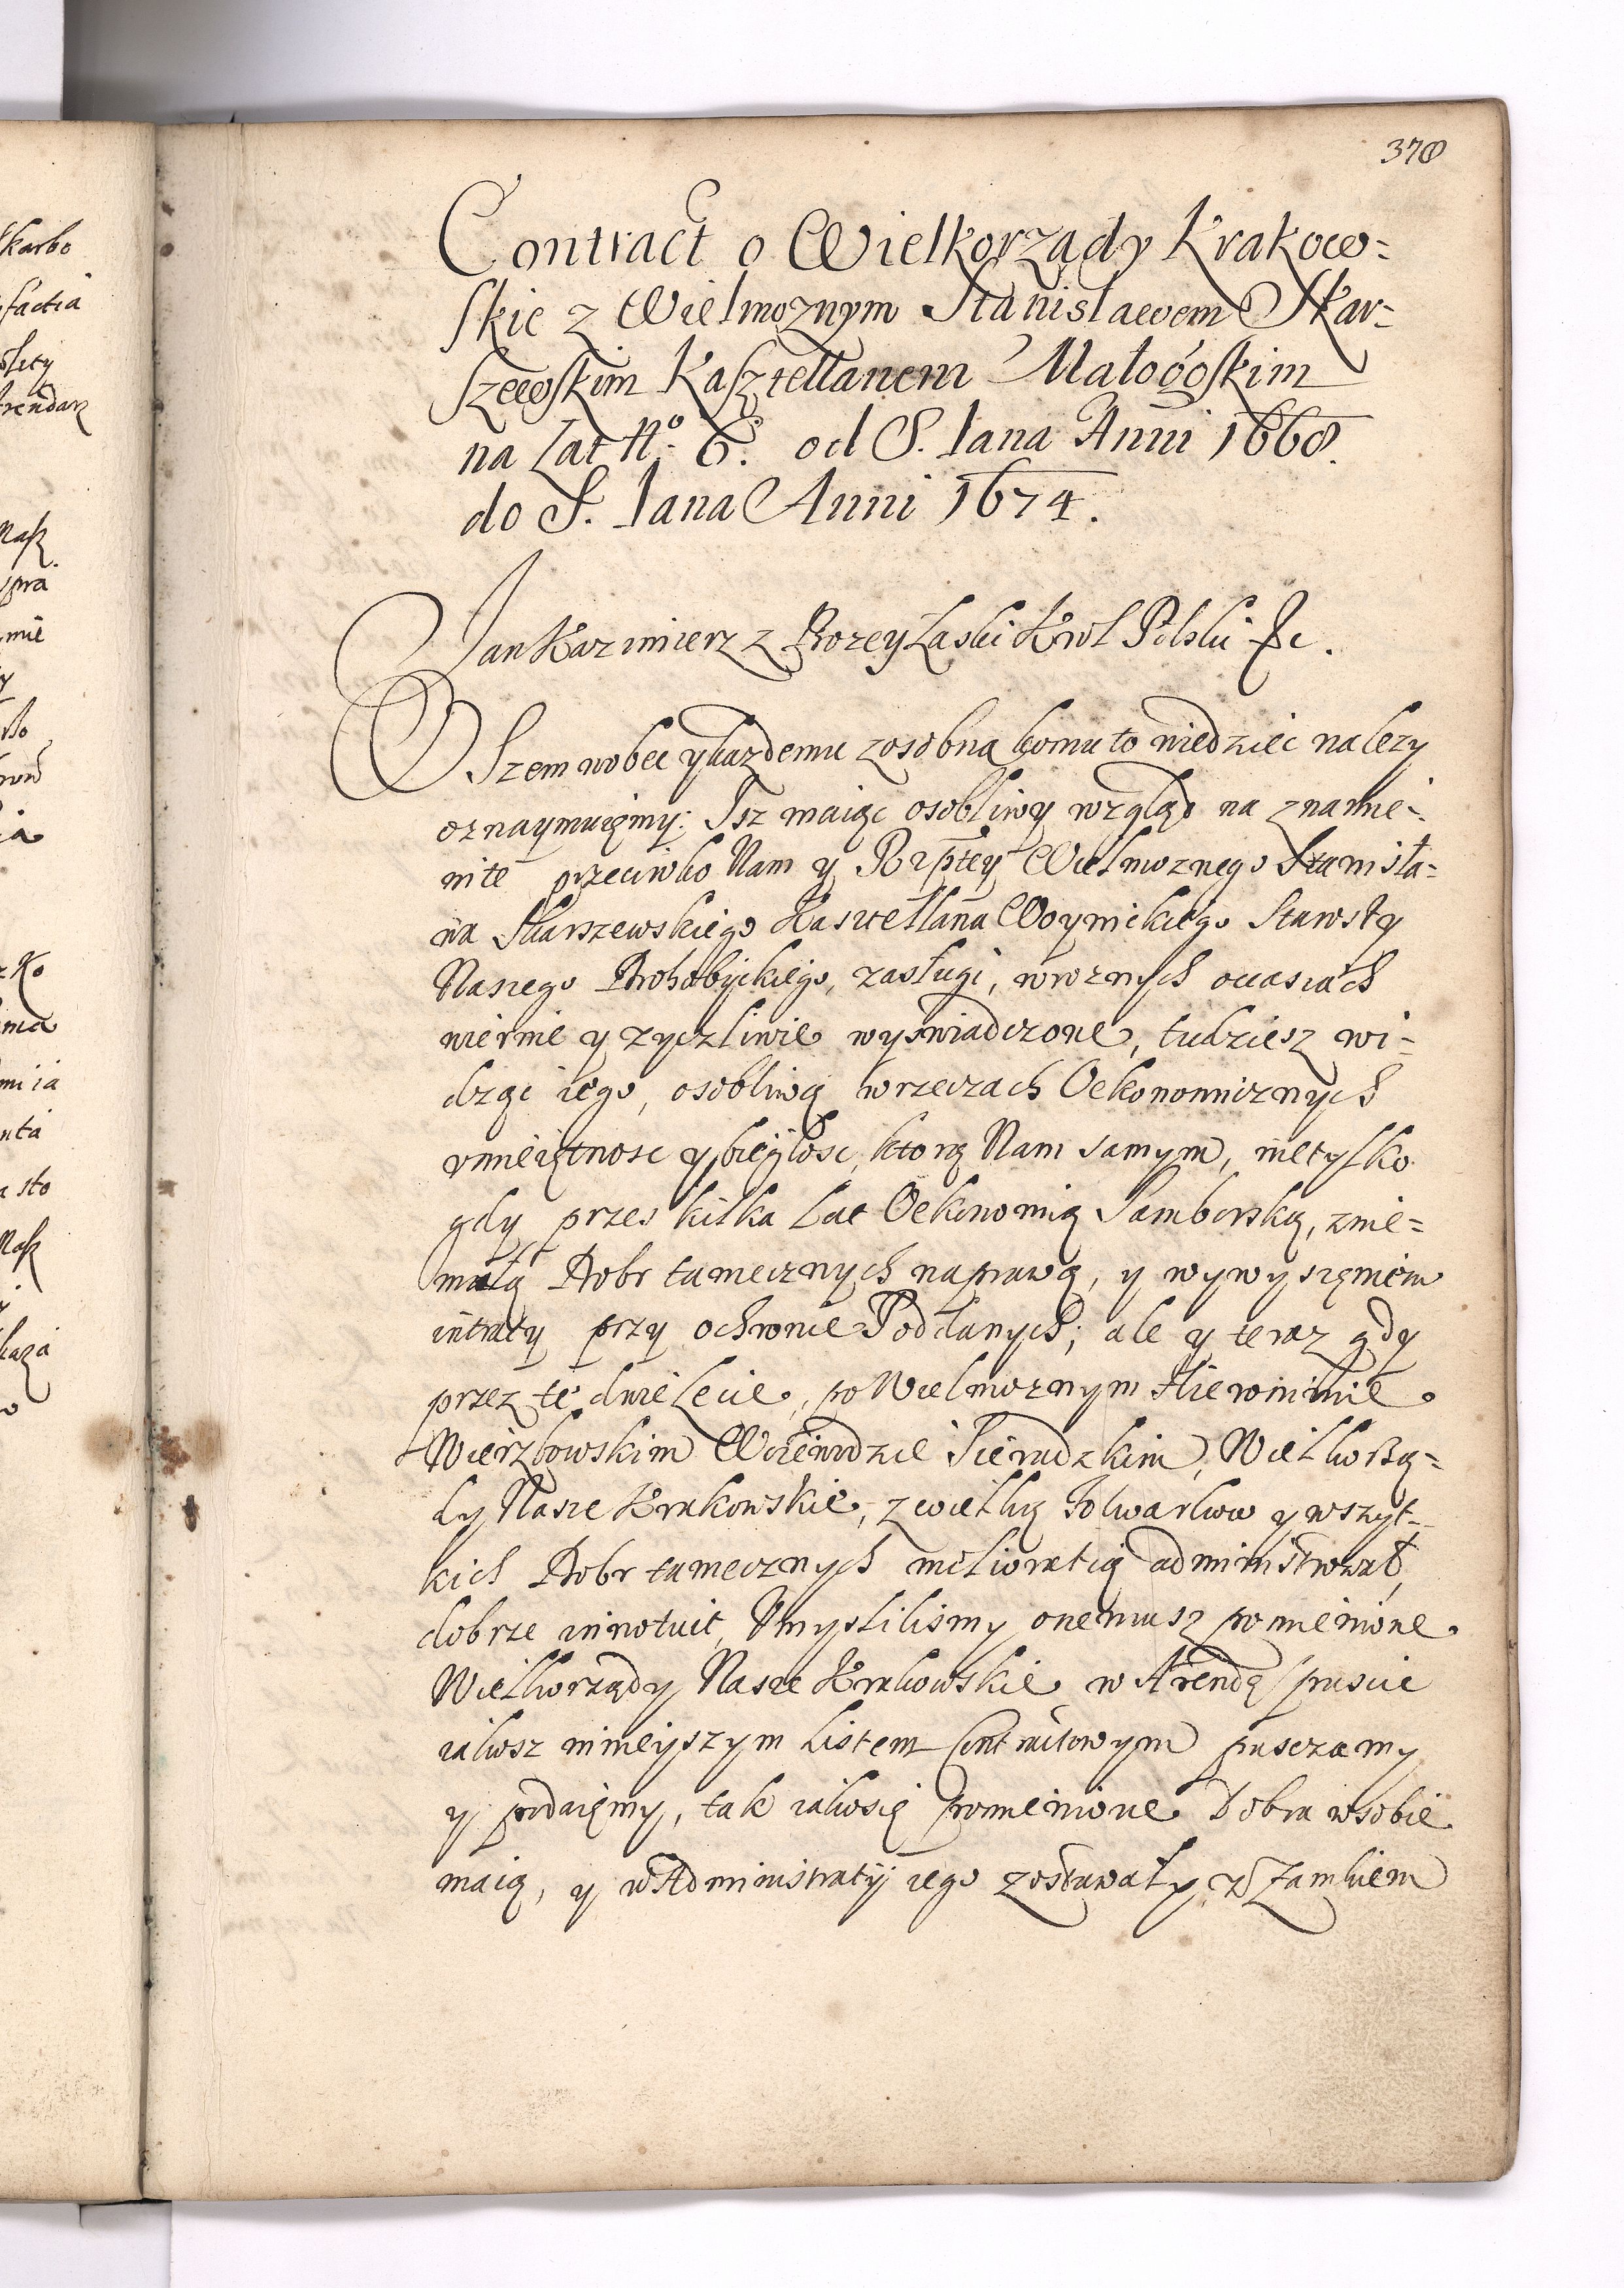 378
Contract o Wielkorządy Krakow-
skie z Wielmoznym Stanisławem Skar-
szewskim Kasztellanem Małogoskim
na Lat No. 6. od S. Iana Anni 1668.
do S. Iana Anni 1674.
Jan Kazimierz z Bozey Łaski Krol Polski &c.
Wszem wobec y kazdemu zosobna komu to wiedziec nalezy
oznaymuięmy: Isz maiąc osobliwy wzgląd na znamie-
nite przeciwko Nam y Rzptey Wielmoznego Stanisła-
wa Skarszewskiego Kasztellana Woynickiego Starosty
Naszego Drohobyckiego, zasługi, w roznych occasiach
wiernie y zyczliwie wyswiadczone, tudziesz wi-
dząc iego, osobliwą w rzeczach Oekonomicznych
vmieiętnosc y biegłosc, ktorą Nam samym, nietylko
gdy przes kilka Lat Oekonomią Samborską, znie-
małą Dobr tamecznych naprawą, y wywyszęniem
intraty przy ochronie Poddanych; ale y teraz gdy
przez te dwie Lecie, po Wielmoznym Hieronimie
Wierzbowskim Woiewodzie Sieradzkim, Wielkorzą-
dy Nasze Krakowskie, z wielką Folwarkow y wszyt-
kich Dobr tamecznych melioratią administrował,
dobrze innotuit, Vmyslilismy onemusz pomienione
Wielkorządy Nasze Krakowskie w Arendę spuscic
iakosz ninieyszym Listem Contractowym pusczamy
y podaięmy, tak iakosię pomienione Dobra wsobie
maią, y w Administratij iego zostawały, z Zamkiem
Skarbo
arendarz
mie
mia